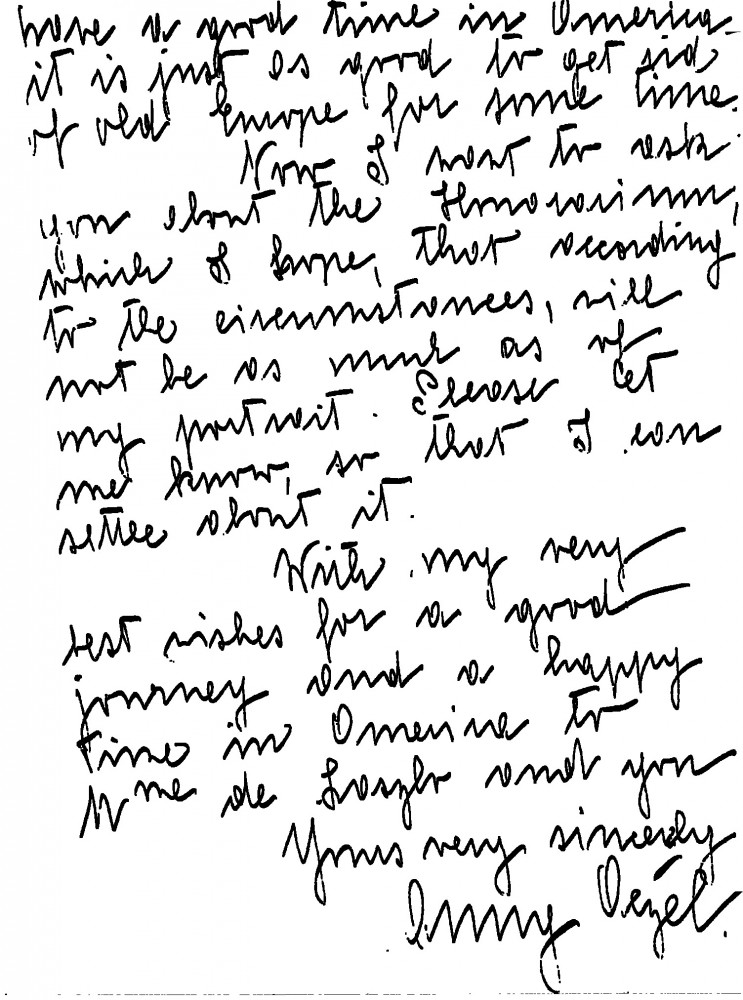 have a good time in America
it is just as good to get rid
of old Europe for some time.
Now I want to ask
you about the Honorarium,
which I hope, that according
to the circumstances, will
not be as much as of
my portrait. Please let
me know, so that I can
settle about it.
With my very
best wishes for a good
journey and a happy
time in America to
Mme de Laszlo and you
Yours very sincerely